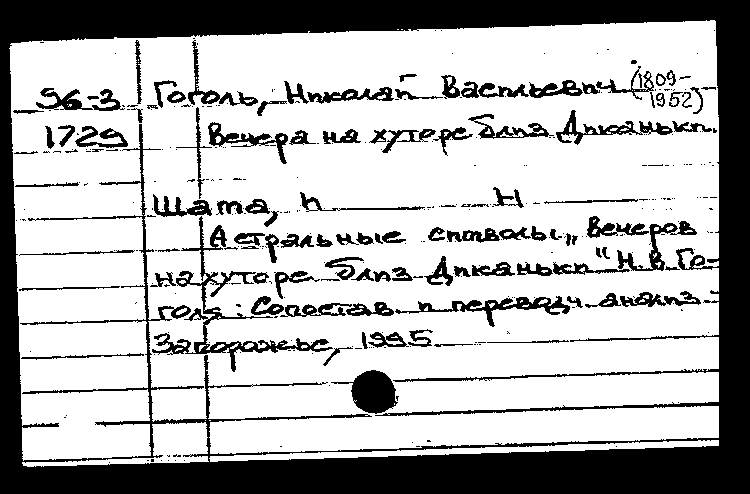 96-3 Гоголь, Николай Васильевич (1809-
1952)
1729 Вечера на хуторе близ Диканьки.
Шата, Н
Астральные символы „Вечеров
на хуторе близ Диканьки" Н. В. Го-
голя: Сопостав. и переводч. анализ -
Запорожье, 1995.